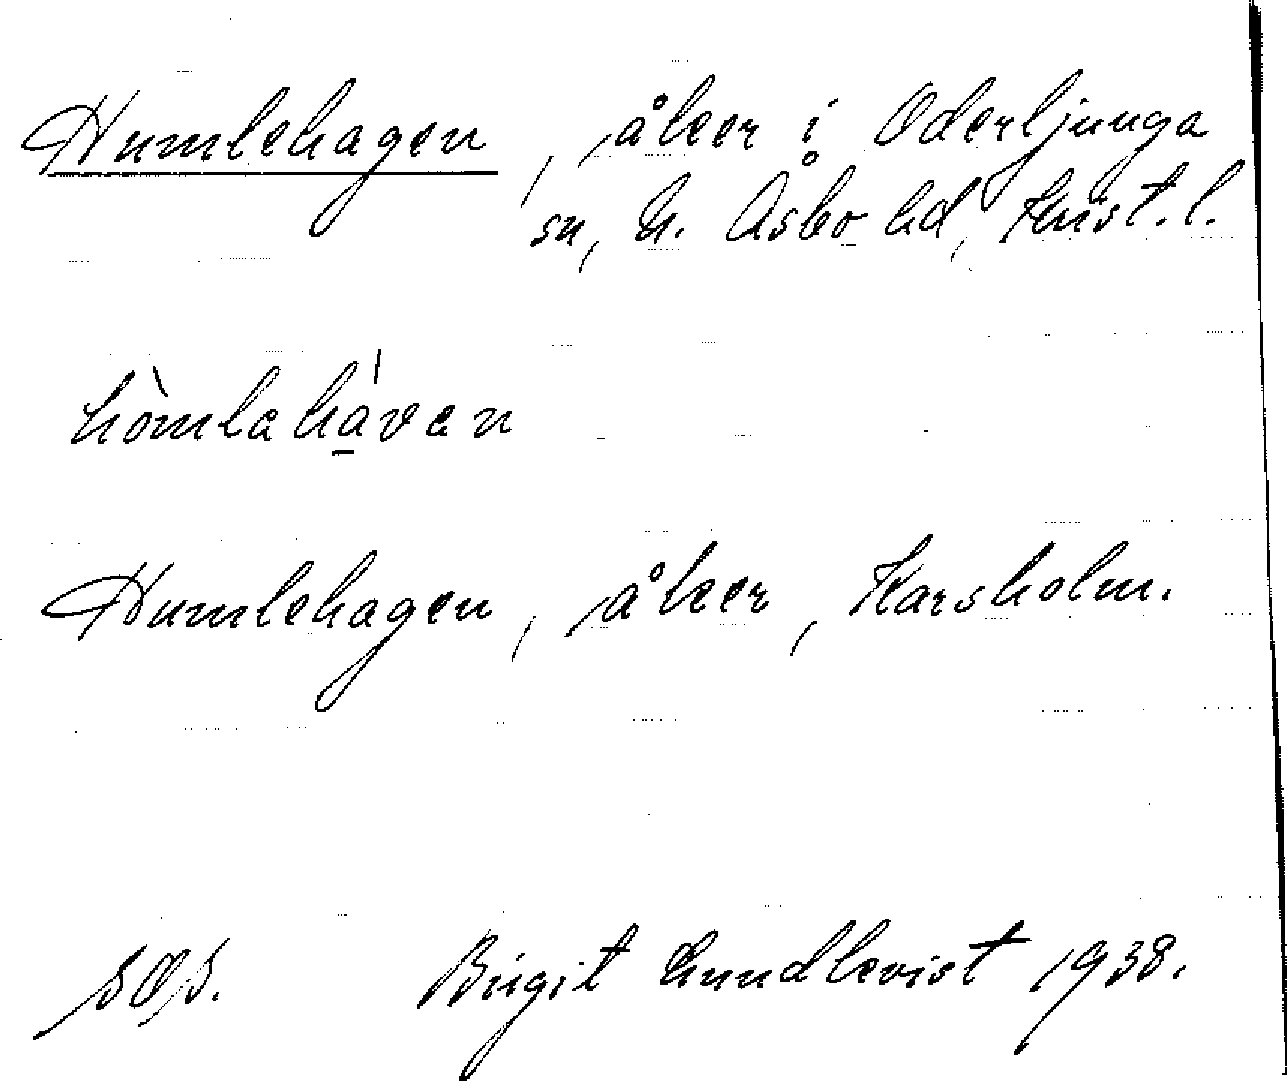 Humlehagen, åker i Oderljunga
sn, N. Åsbo hd, Krist. l.
hòmlahávan
Humlehagen, åker, Karsholm.
Birgit Lundkvist 1938.